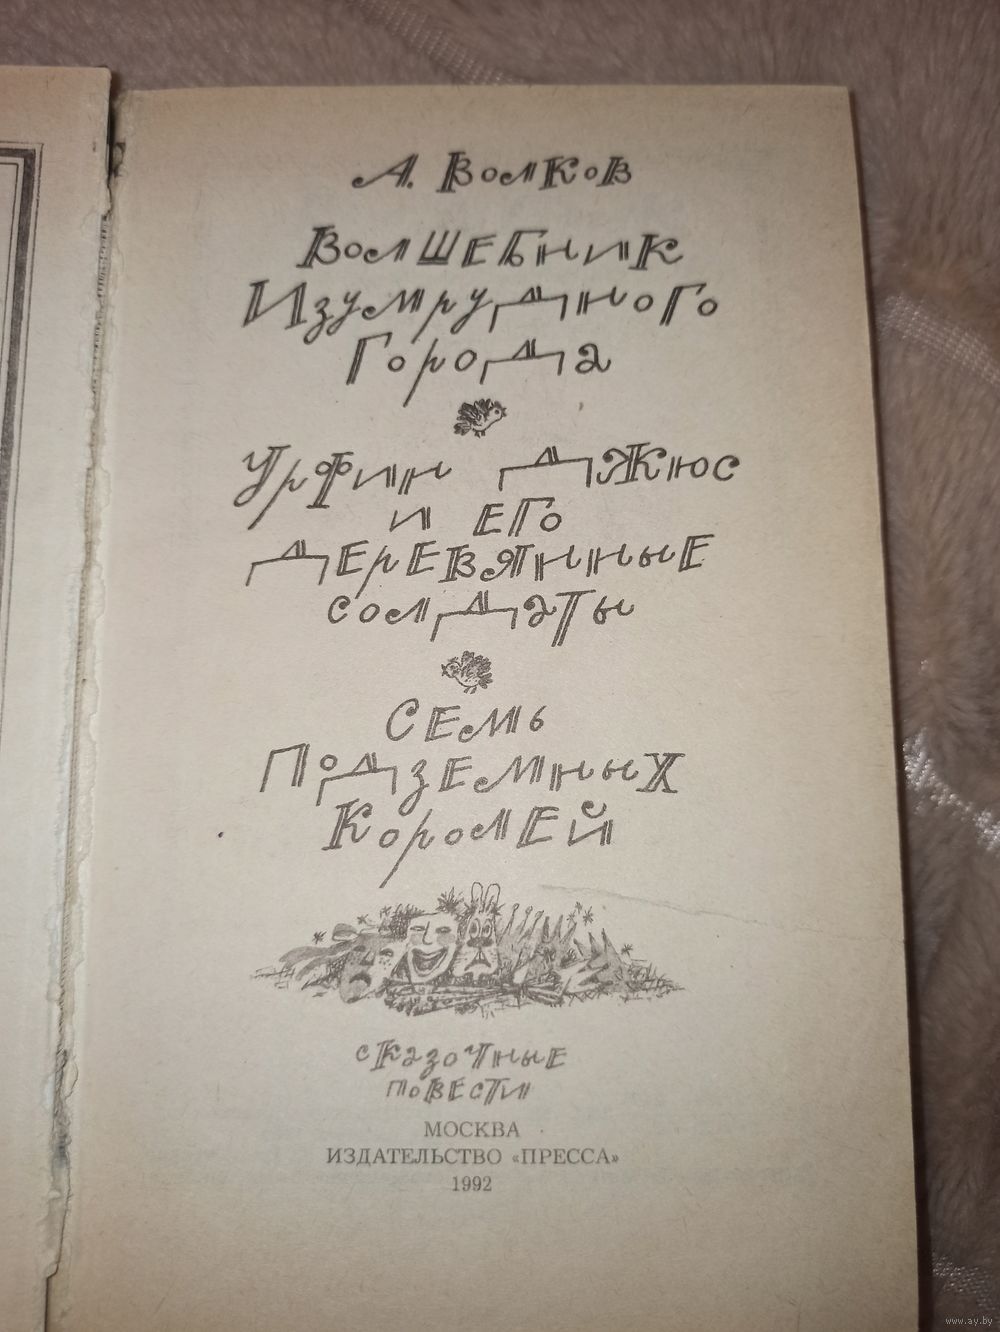 А. Волков
Волшебник
Изумрудного
Города
Урфин Джюс
и его
деревянные
солдаты
Семь
Подземных
Королей
сказочные
повести
МОСКВА
ИЗДАТЕЛЬСТВО «ПРЕССА»
1992
www.ay.by